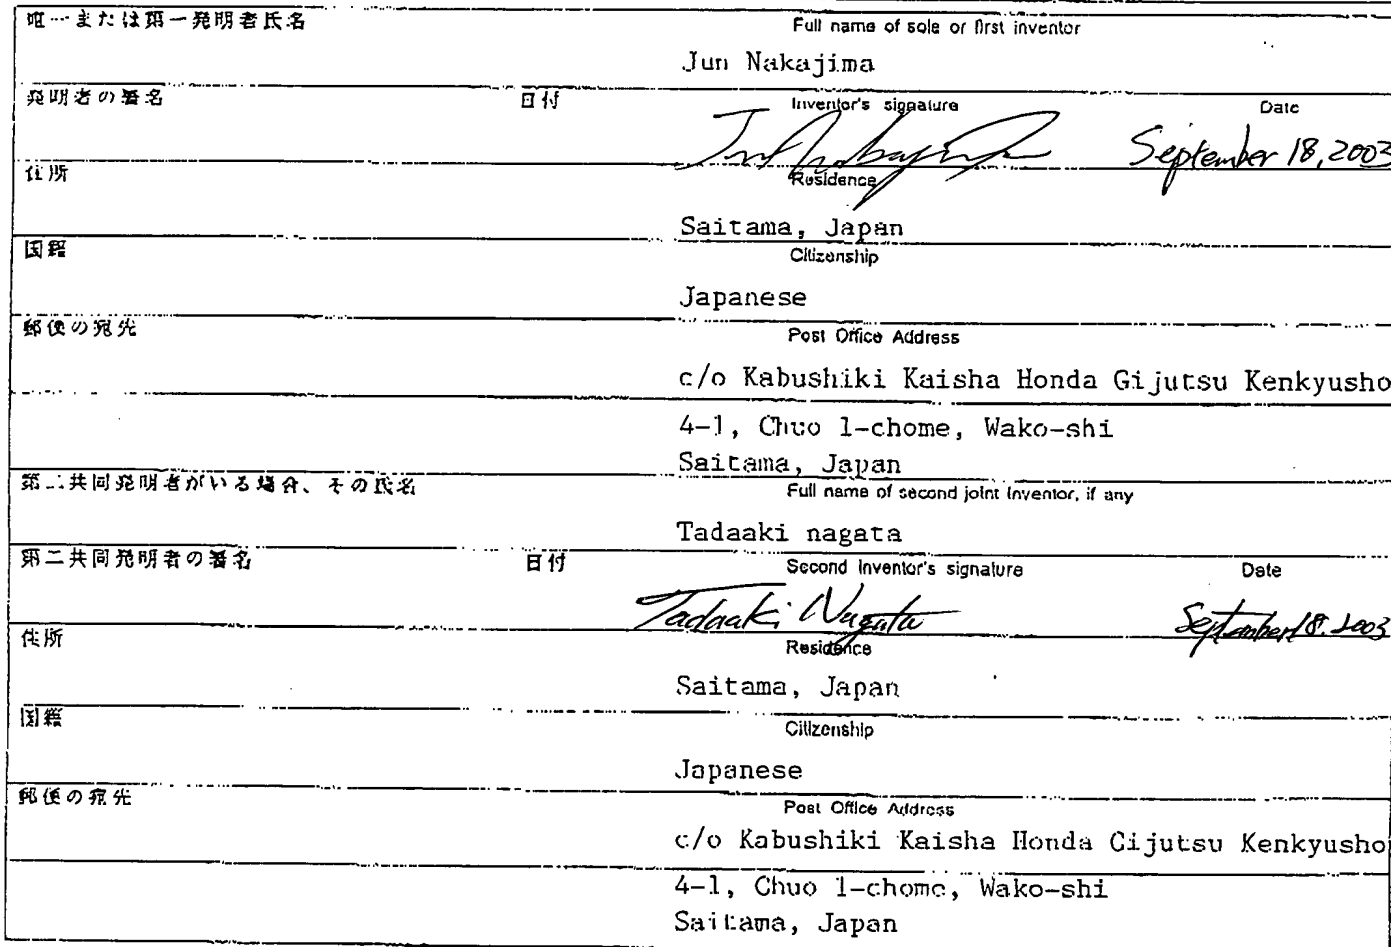 唯一または第一発明者氏名
Full name of sole or first inventor
Jun Nakajima
発明者の署名 日付 Inventor's signature Date
Jun Nakajima September 18, 2003
住所
Residence
Saitama, Japan
国籍
Citizenship
Japanese
郵便の宛先
Post Office Address
c/o Kabushiki Kaisha Honda Gijutsu Kenkyusho
4-1, Chuo 1-chome, Wako-shi
Saitama, Japan
第二共同発明者がいる場合、その氏名
Full name of second joint inventor, if any
Tadaaki nagata
第二共同発明者の署名 日付 Second inventor's signature Date
Tadaaki Nagata September 18. 2003
住所
Residence
Saitama, Japan
国籍
Citizenship
Japanese
郵便の宛先
Post Office Address
c/o Kabushiki Kaisha Honda Gijutsu Kenkyusho
4-1, Chuo 1-chome, Wako-shi
Saitama, Japan